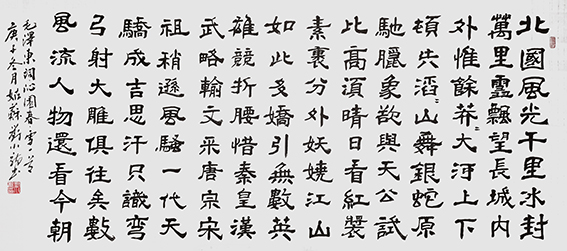 北國風光千里冰封
萬里雪飄望長城内
外惟餘莽〻大河上下
頓失滔〻山舞銀蛇原
馳臘象欲與天公試
比高須晴日看紅裝
素裹分外妖嬈江山
如此多嬌引無數英
雄競折腰惜秦皇漢
武略輸文采唐宗宋
祖稍遜風騷一代天
驕成吉思汗只識彎
弓射大雕俱往矣數
風流人物還看今朝
毛澤東詞沁園春雪一首
庚子冬月姑蘇